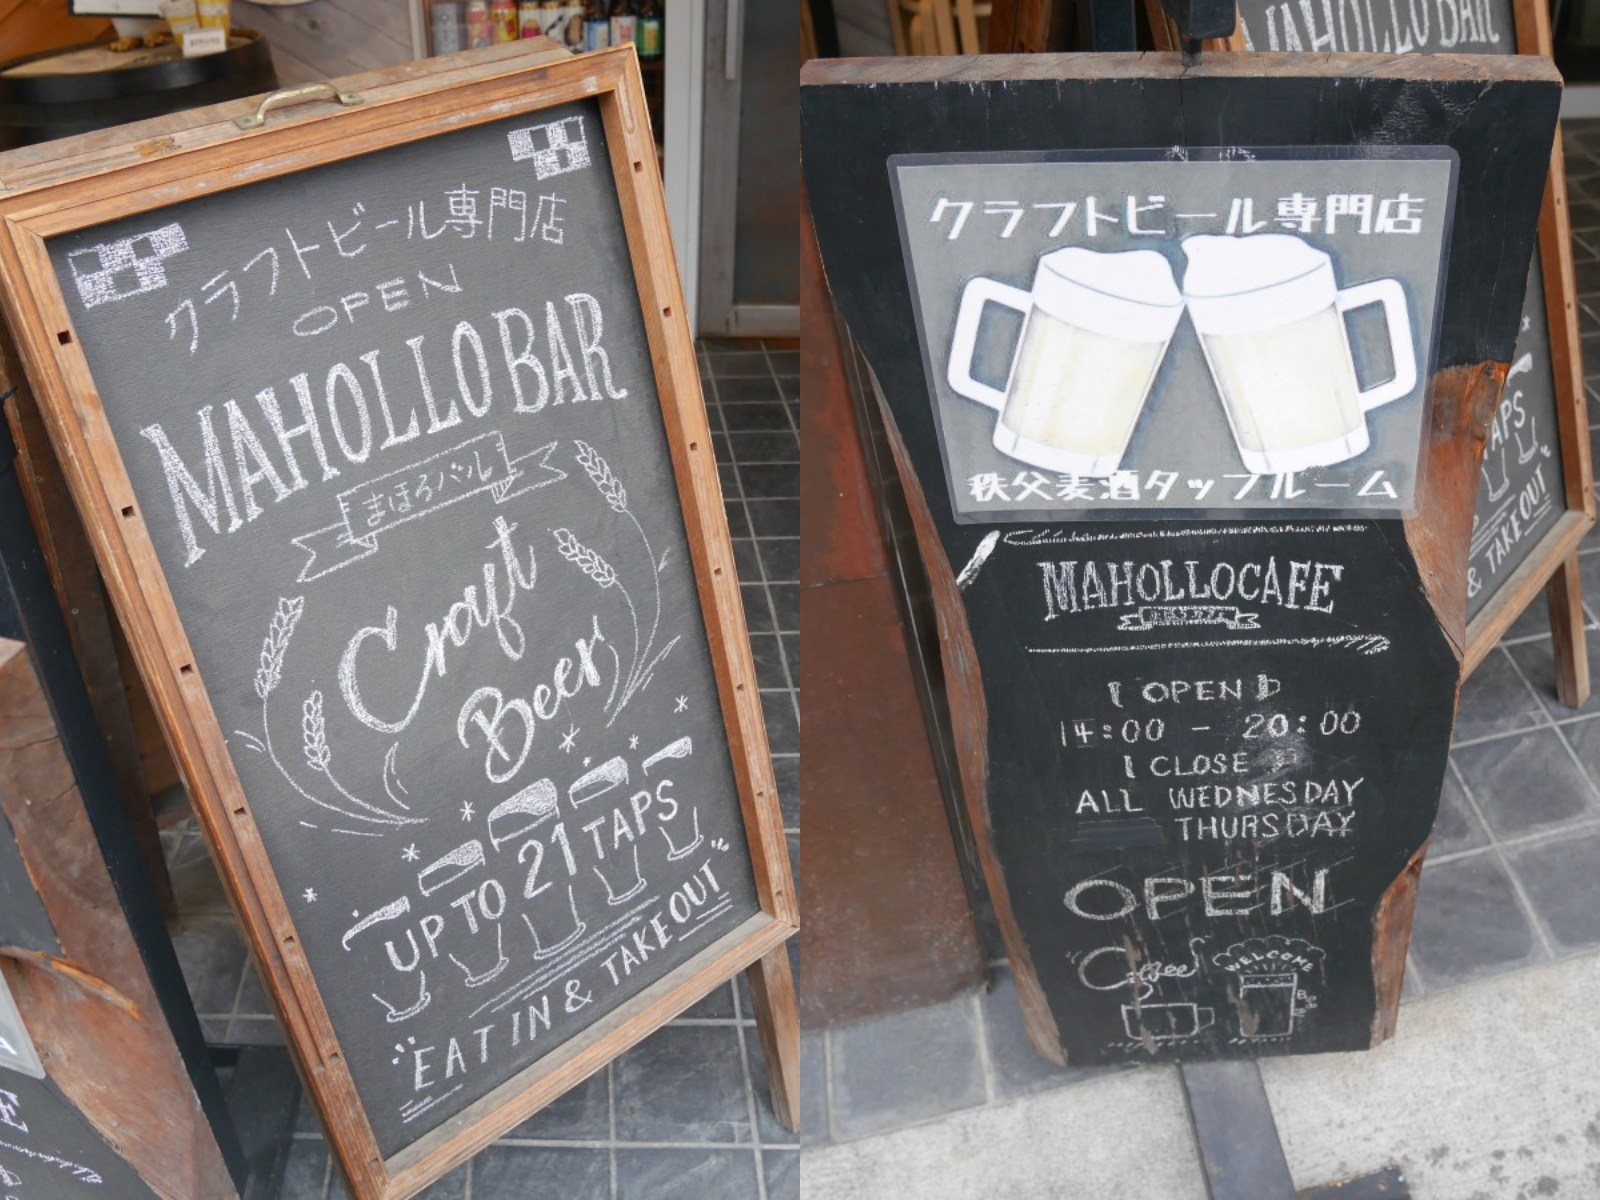 クラフトビール専門店
OPEN
MAHOLLO BAR
まほろバル
Craft
Beer
UP TO 21 TAPS
"EAT IN & TAKE OUT"
MAHOLLO BAR
クラフトビール専門店
秩父麦酒タップルーム
MAHOLLOCAFE
【OPEN】
14:00 - 20:00
【CLOSE】
ALL WEDNESDAY
THURSDAY
OPEN
"Coffee"
WELCOME
TAPS
& TAKE OUT"